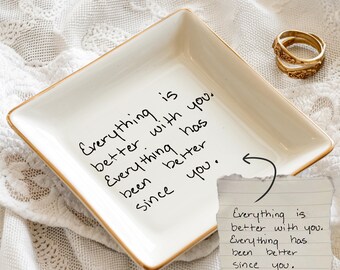 Everything is
better with you.
Everything has
been better
since you.
Everything is
better with you.
Everything has
been better
since you.